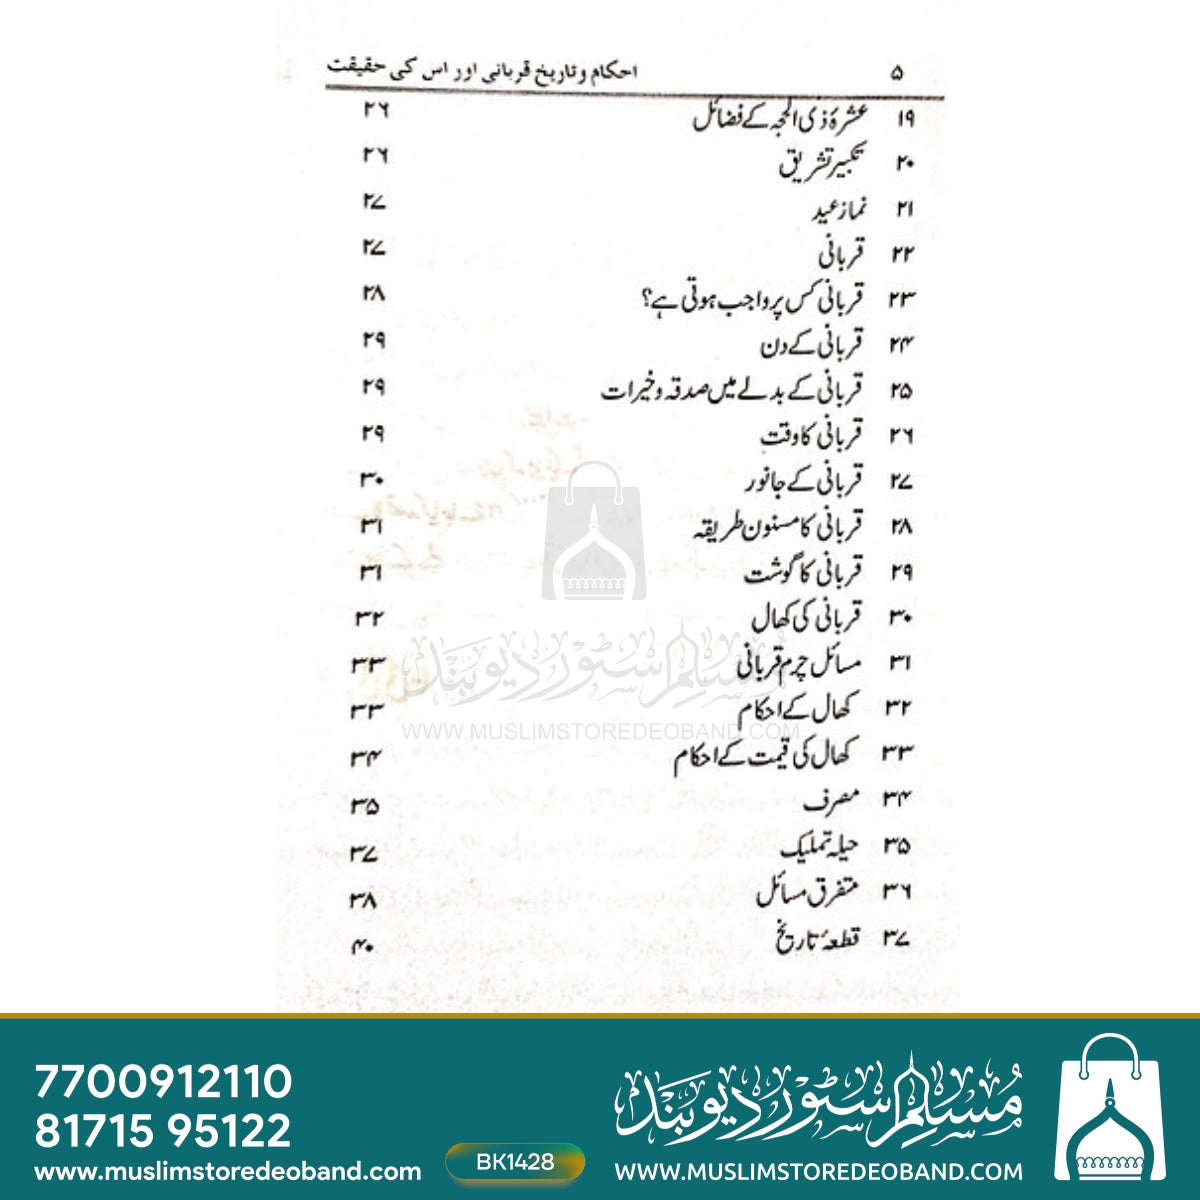 ۵ احکام و تاریخ قربانی اور اس کی حقیقت
۱۹ عشرۂ ذی الحجہ کے فضائل ۲۶
۲۰ تکبیر تشریق ۲۶
۲۱ نماز عید ۲۷
۲۲ قربانی ۲۷
۲۳ قربانی کس پر واجب ہوتی ہے؟ ۲۸
۲۴ قربانی کے دن ۲۹
۲۵ قربانی کے بدلے میں صدقہ و خیرات ۲۹
۲۶ قربانی کا وقت ۲۹
۲۷ قربانی کے جانور ۳۰
۲۸ قربانی کا مسنون طریقہ ۳۱
۲۹ قربانی کا گوشت ۳۱
۳۰ قربانی کی کھال ۳۲
۳۱ مسائل چرم قربانی ۳۳
۳۲ کھال کے احکام ۳۳
۳۳ کھال کی قیمت کے احکام ۳۴
۳۴ مصرف ۳۵
۳۵ حیلہ تملیک ۳۷
۳۶ متفرق مسائل ۳۸
۳۷ قطعۂ تاریخ ۴۰
مسلم سٹور دیوبند
WWW.MUSLIMSTOREDEOBAND.COM
7700912110
81715 95122
www.muslimstoredeoband.com
BK1428
مسلم سٹور دیوبند
WWW.MUSLIMSTOREDEOBAND.COM